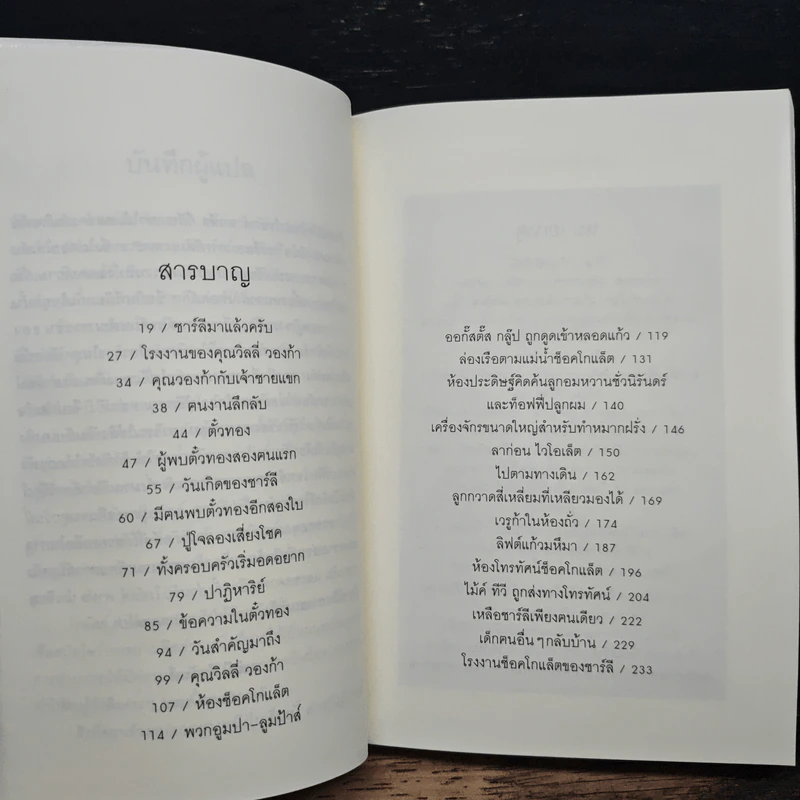 สารบาญ
19 / ชาร์ลีมาแล้วครับ
27 / โรงงานของคุณวิลลี่ วองก้า
34 / คุณวองก้ากับเจ้าชายแขก
38 / คนงานลึกลับ
44 / ตั๋วทอง
47 / ผู้พบตั๋วทองสองคนแรก
55 / วันเกิดของชาร์ลี
60 / มีคนพบตั๋วทองอีกสองใบ
67 / ปู่โจลองเสี่ยงโชค
71 / ทั้งครอบครัวเริ่มอดอยาก
79 / ปาฏิหาริย์
85 / ข้อความในตั๋วทอง
94 / วันสำคัญมาถึง
99 / คุณวิลลี่ วองก้า
107 / ห้องช็อคโกแล็ต
114 / พวกอูมปา-ลูมป้าส์
ออกั๊สตั๊ส กลู๊ป ถูกดูดเข้าหลอดแก้ว / 119
ล่องเรือตามแม่น้ำช็อคโกแล็ต / 131
ห้องประดิษฐ์คิดค้นลูกอมหวานชั่วนิรันดร์
และท็อฟฟี่ปลูกผม / 140
เครื่องจักรขนาดใหญ่สำหรับทำหมากฝรั่ง / 146
ลาก่อน ไวโอเล็ต / 150
ไปตามทางเดิน / 162
ลูกกวาดสี่เหลี่ยมที่เหลียวมองได้ / 169
เวรูก้าในห้องถั่ว / 174
ลิฟต์แก้วมหึมา / 187
ห้องโทรทัศน์ช็อคโกแล็ต / 196
ไม้ค์ ทีวี ถูกส่งทางโทรทัศน์ / 204
เหลือชาร์ลีเพียงคนเดียว / 222
เด็กคนอื่นๆกลับบ้าน / 229
โรงงานช็อคโกแล็ตของชาร์ลี / 233